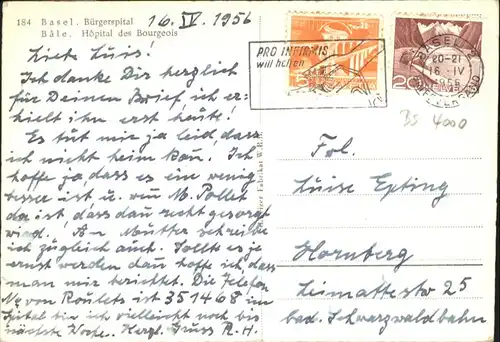 184 Basel. Bürgerspital
Bâle. Hôpital des Bourgeois
16. IV. 1956
Liebe Luis!
Ich danke Dir herzlich
für Deinen Brief ich er-
hielt ihn erst heute!
Es tut mir ja leid, dass
ich nicht heim kan. Ich
hoffe ja dass es ein wenig
besser ist u. von M. Pollet
da ist, dass dan recht gesorgt
wird! An Mutter schreibe
ich zugleich auch. Sollte es ja
ernst werden dan hoffe ich, dass
man mir berichtet. Die Telefon
No von Roulets ist 351468 im
Spital bin ich vielleicht noch bis
nächste Woche. Herzl. Gruss R. H.
PRO INFIRMIS
will helfen
5
20
BASEL 2
20-21
16-IV
1956
BS 4000
Frl.
Luise Epting
Hornberg
Leimattestr 25
bad. Schwarzwaldbahn